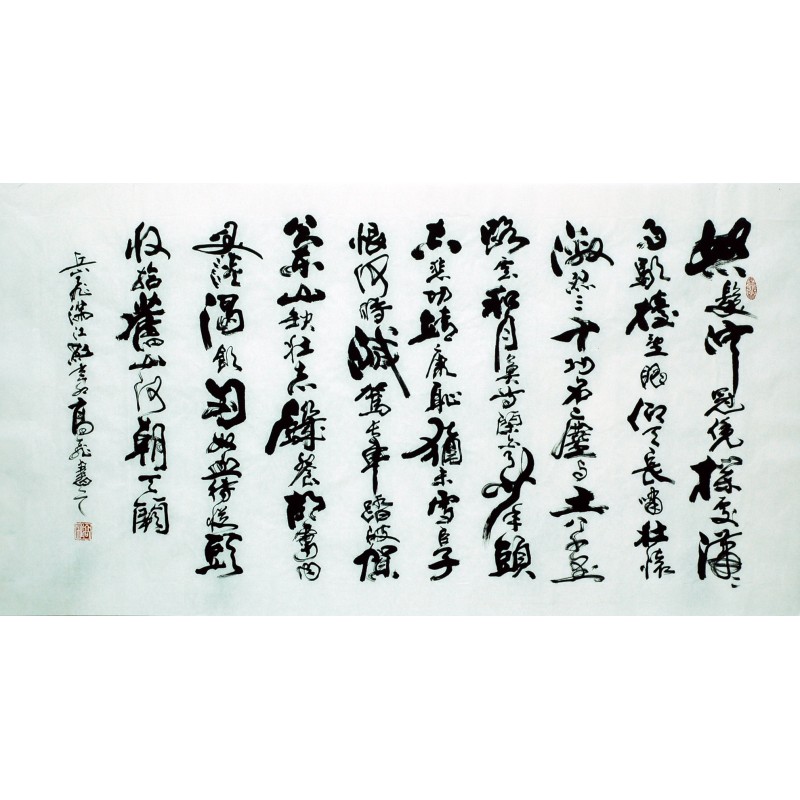 怒髮沖冠憑欄處瀟〻
雨歇擡望眼仰天長嘯壯懷
激烈三十功名塵與土八千里
路雲和月莫等閑白了少年頭
空悲切靖康恥猶未雪臣子
恨何時滅駕長車踏破賀
蘭山缺壯志饑餐胡虜肉
笑談渴飲匈奴血待從頭
收拾舊山河朝天闕
岳飛滿江紅高飛書之